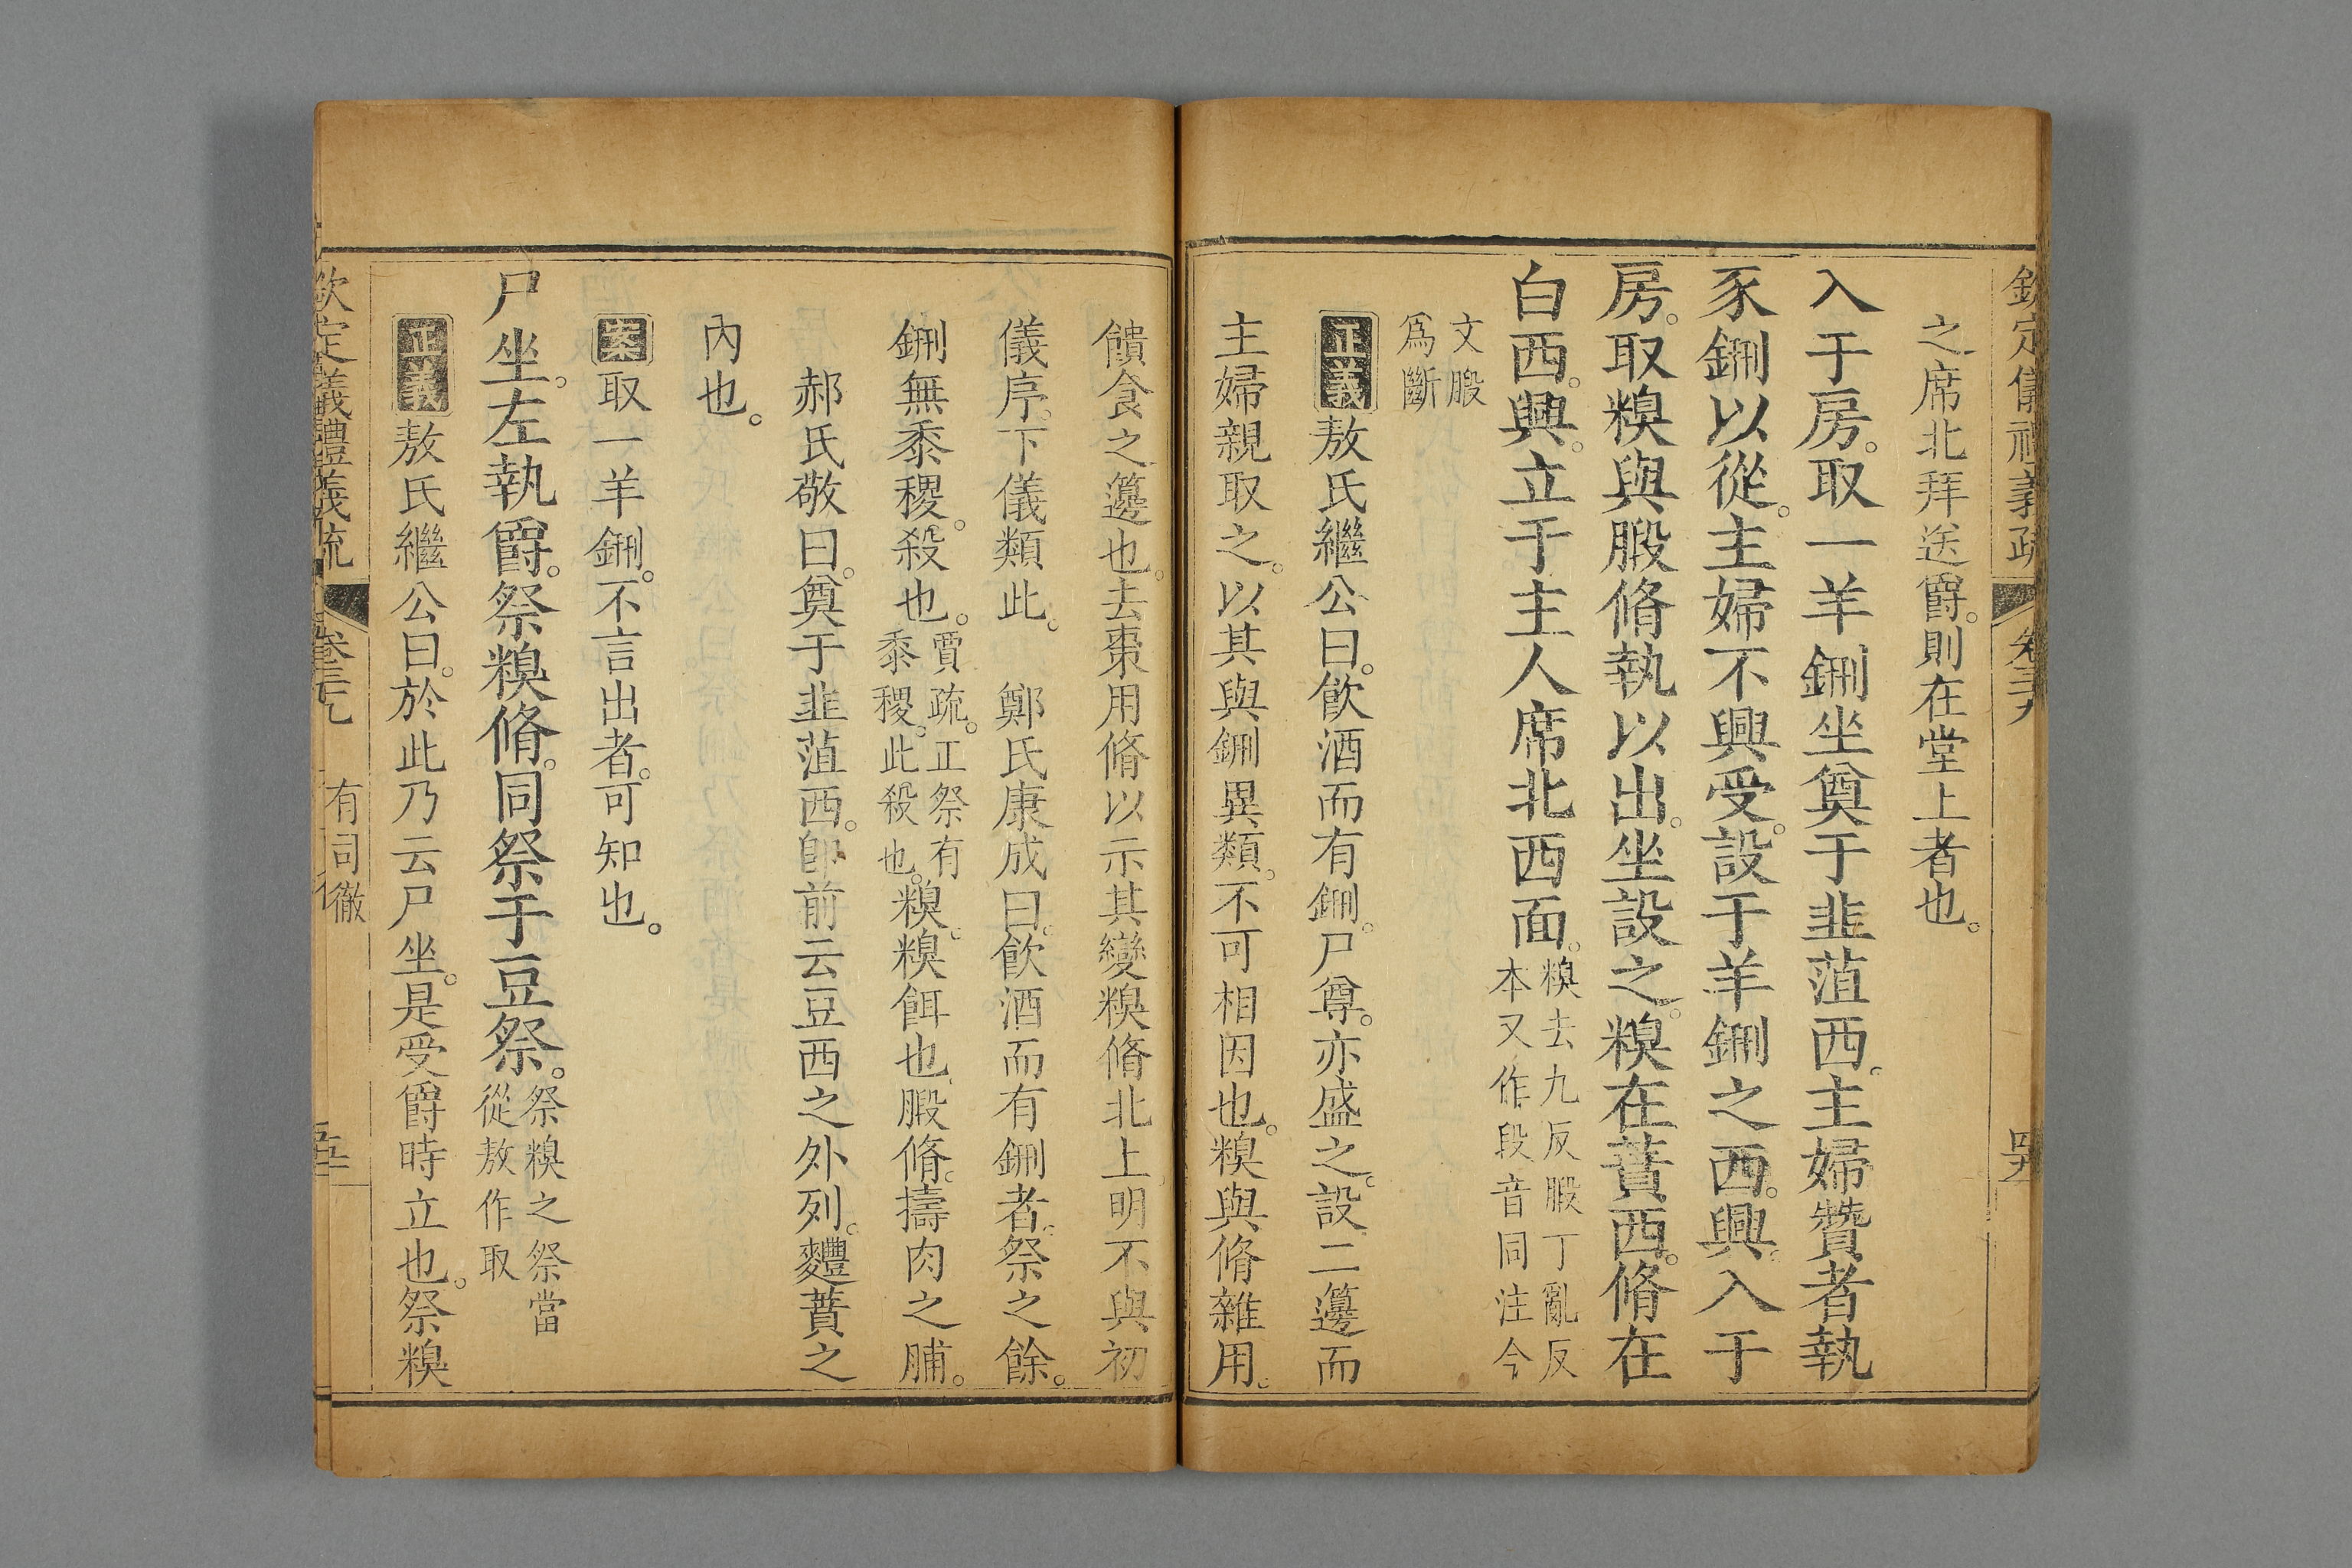 欽定儀禮義疏
卷三十九
之席北拜送爵。則在堂上者也。
入于房。取一羊鉶坐奠于韭菹西。主婦贊者執
豕鉶以從。主婦不興受。設于羊鉶之西。興。入于
房。取糗與腶脩執以出。坐設之。糗在蕡西。脩在
白西。興。立于主人席北西面。
糗去九反腶丁亂反
本又作段音同注今
文腶
爲斷
正義敖氏繼公曰。飲酒而有鉶。尸尊。亦盛之。設二籩而
主婦親取之。以其與鉶異類。不可相因也。糗與脩雜用。
饋食之籩也。去棗用脩以示其變糗脩北上明不與初
儀序。下儀類此。 鄭氏康成曰。飲酒而有鉶者。祭之餘。
鉶無黍稷。殺也。
賈疏。正祭有
黍稷。此殺也。
糗。糗餌也腶脩。擣肉之脯。
郝氏敬曰。奠于韭菹西。卽前云豆西之外列。麷蕡之
內也。
案取一羊鉶。不言出者。可知也。
尸坐。左執爵。祭糗脩。同祭于豆祭。
祭糗之祭當
從敖作取
正義敖氏繼公曰。於此乃云尸坐。是受爵時立也。祭糗
欽定儀禮義疏
有司徹